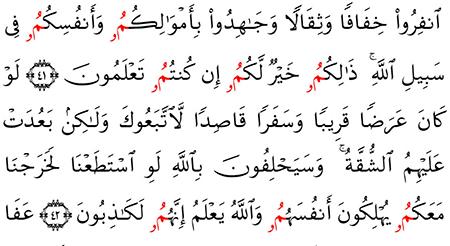 ٱنفِرُواْ خِفَافٗا وَثِقَالٗا وَجَٰهِدُواْ بِأَمۡوَٰلِكُمُۥ وَأَنفُسِكُمُۥ فِي
سَبِيلِ ٱللَّهِۚ ذَٰلِكُمُۥ خَيۡرٞ لَّكُمُۥ إِن كُنتُمُۥ تَعۡلَمُونَ ٤١ لَوۡ
كَانَ عَرَضٗا قَرِيبٗا وَسَفَرٗا قَاصِدٗا لَّٱتَّبَعُوكَ وَلَٰكِنۢ بَعُدَتۡ
عَلَيۡهِمُ ٱلشُّقَّةُۚ وَسَيَحۡلِفُونَ بِٱللَّهِ لَوِ ٱسۡتَطَعۡنَا لَخَرَجۡنَا
مَعَكُمُۥ يُهۡلِكُونَ أَنفُسَهُمُۥ وَٱللَّهُ يَعۡلَمُ إِنَّهُمُۥ لَكَٰذِبُونَ ٤٢ عَفَا